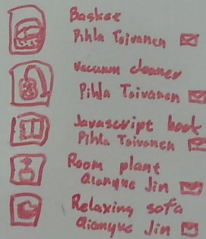 Basket
Pihla Toivanen
Vacuum cleaner
Pihla Toivanen
Javascript book
Pihla Toivonen
Room plant
Qiongyue Jin
Relaxing sofa
Qiongyue Jin